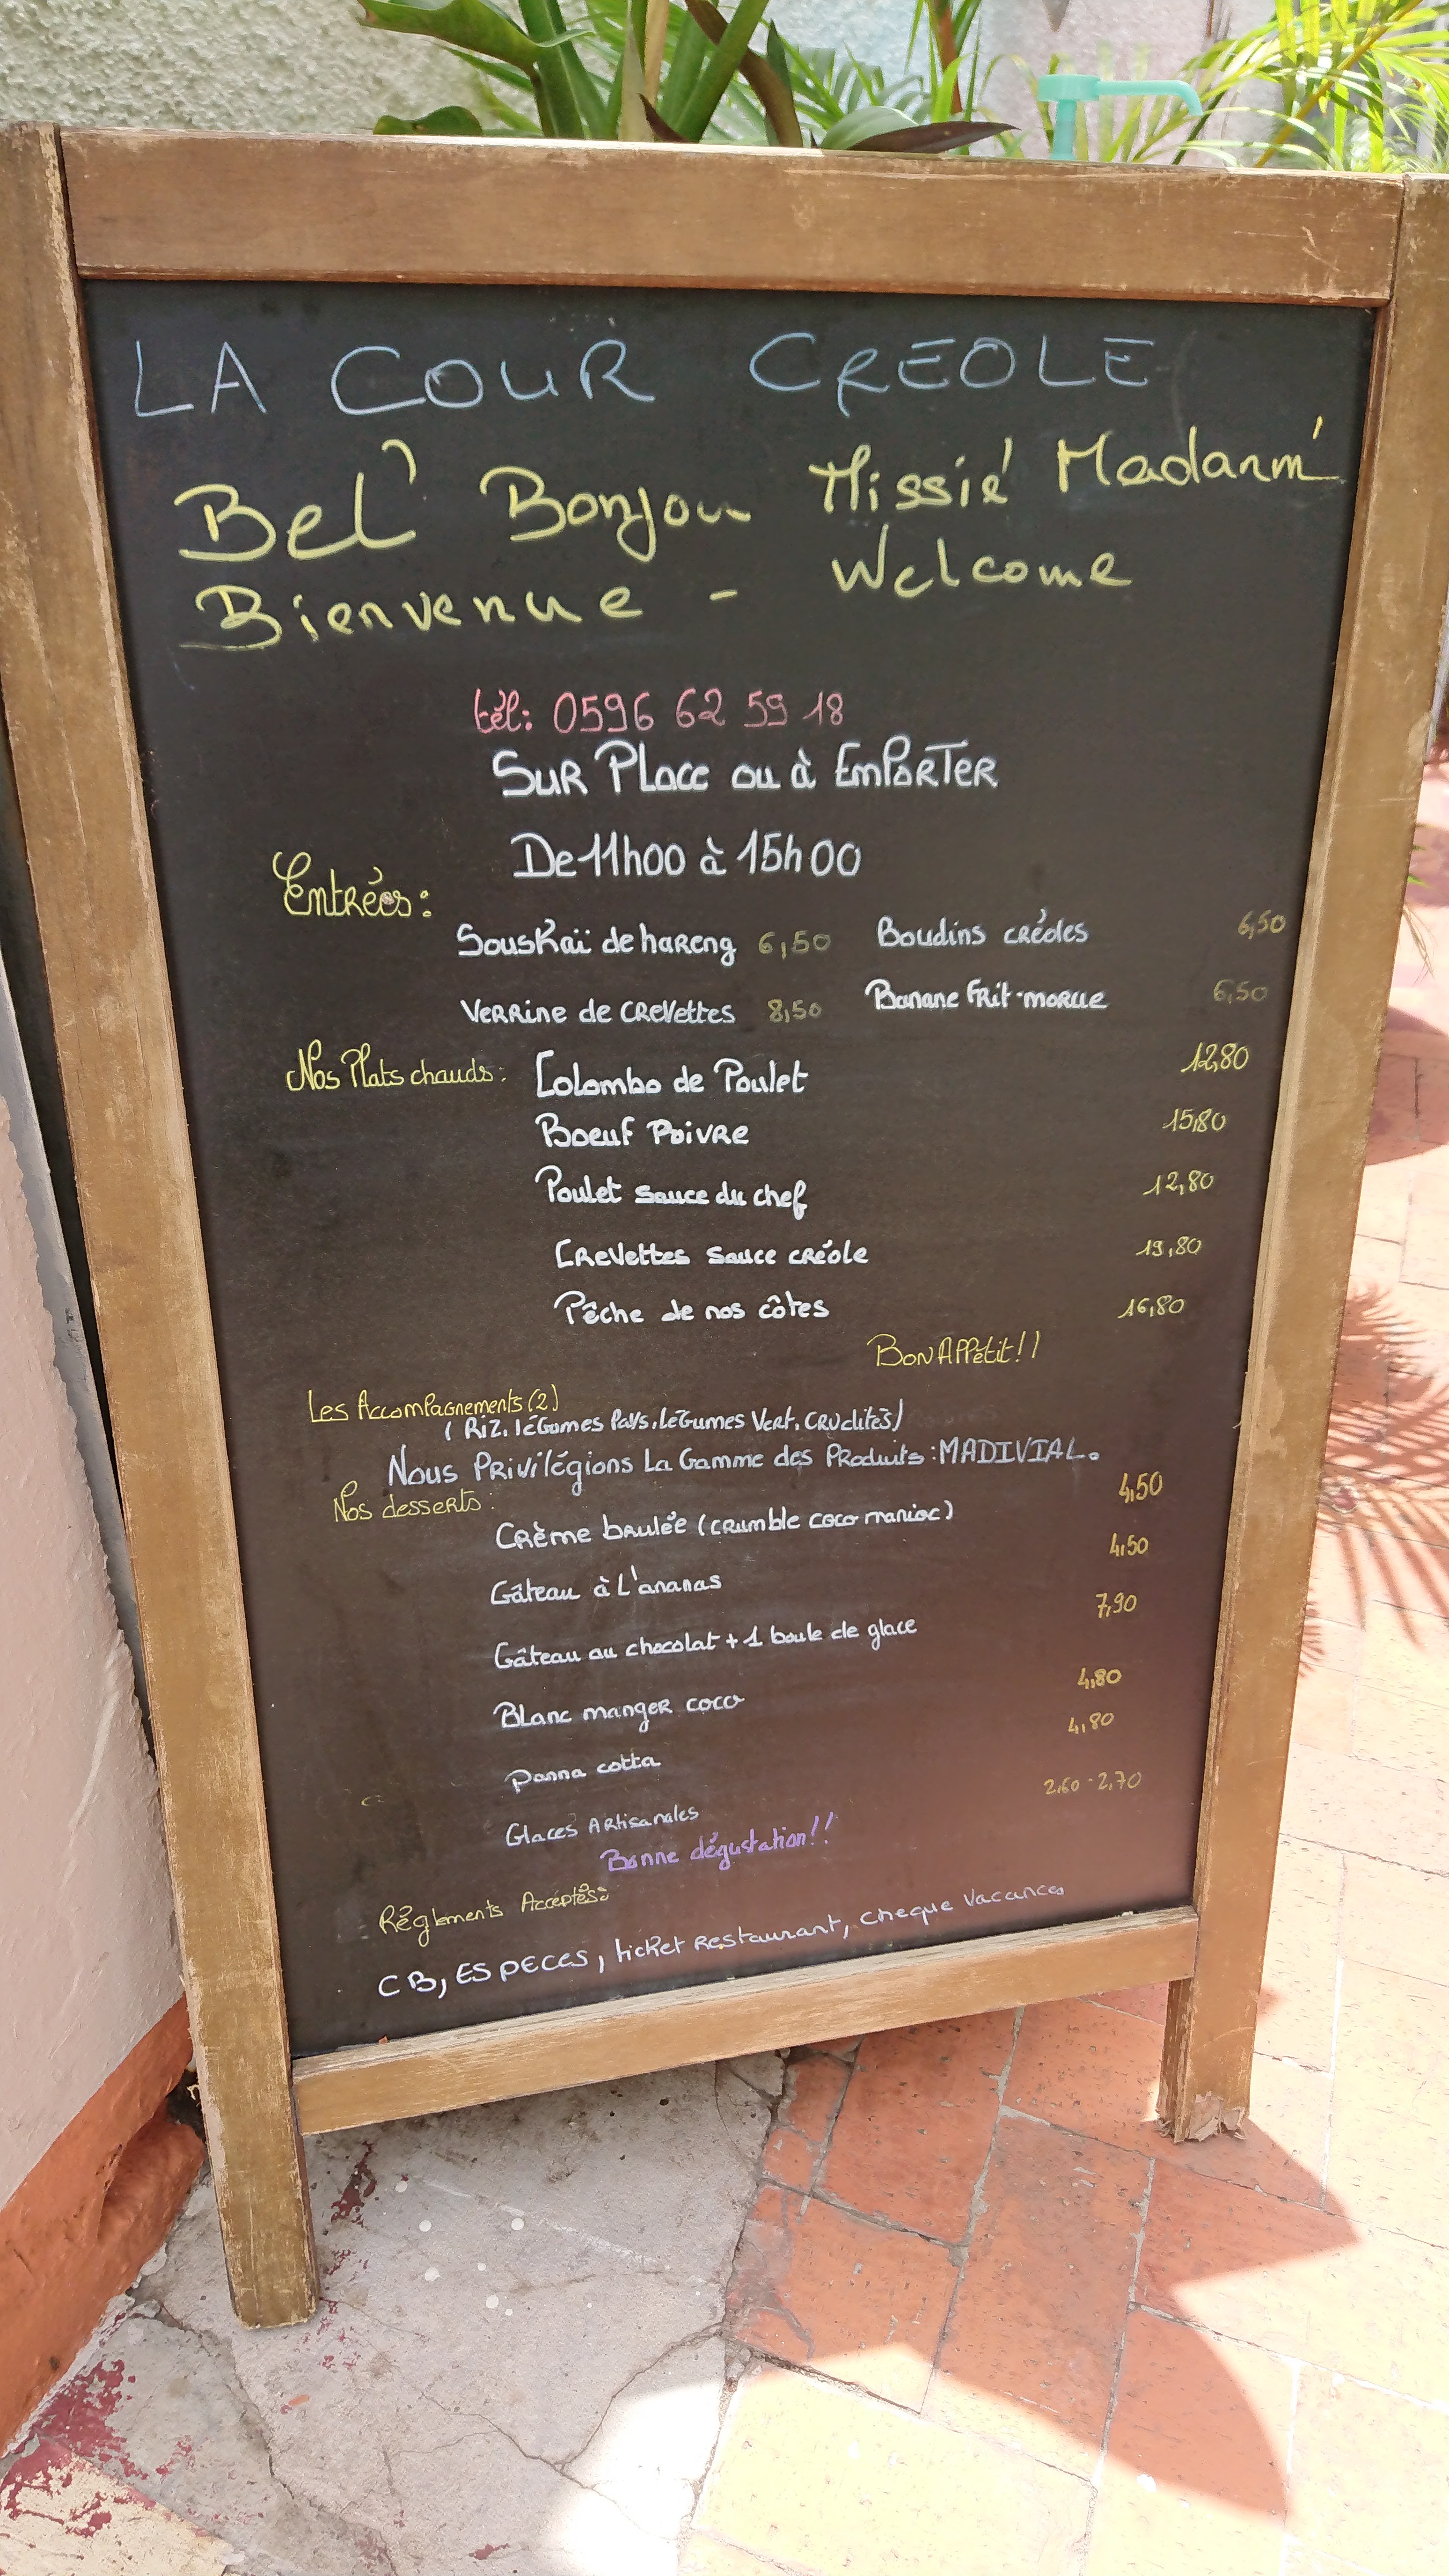 LA COUR CREOLE
Bel' Bonjou Missié Madanm'
Bienvenue - Welcome
tél: 0596 62 59 18
SUR PLace ou à EmPORTER
De 11h00 à 15h00
Entrées:
Souskaï de hareng 6,50 Boudins créoles 6,50
Verrine de crevettes 8,50 Banane Frit-morue 6,50
Nos Plats chauds: Colombo de Poulet 12,80
Boeuf Poivre 15,80
Poulet sauce du chef 12,80
Crevettes sauce créole 19,80
Pêche de nos côtes 16,80
Bon Appétit!!
Les Accompagnements (2)
( Riz, légumes Pays, légumes Vert, crudités)
Nous Privilégions La Gamme des Produits: MADIVIAL.
Nos desserts:
Crème brulée (crumble coco manioc) 4,50
Gâteau à L'ananas 4,50
Gâteau au chocolat + 1 boule de glace 7,90
Blanc manger coco 4,80
Panna cotta 4,80
Glaces Artisanales 2,60 - 2,70
Bonne dégustation!!
Réglements Acceptés:
CB, ESPECES, ticket restaurant, cheque vacances